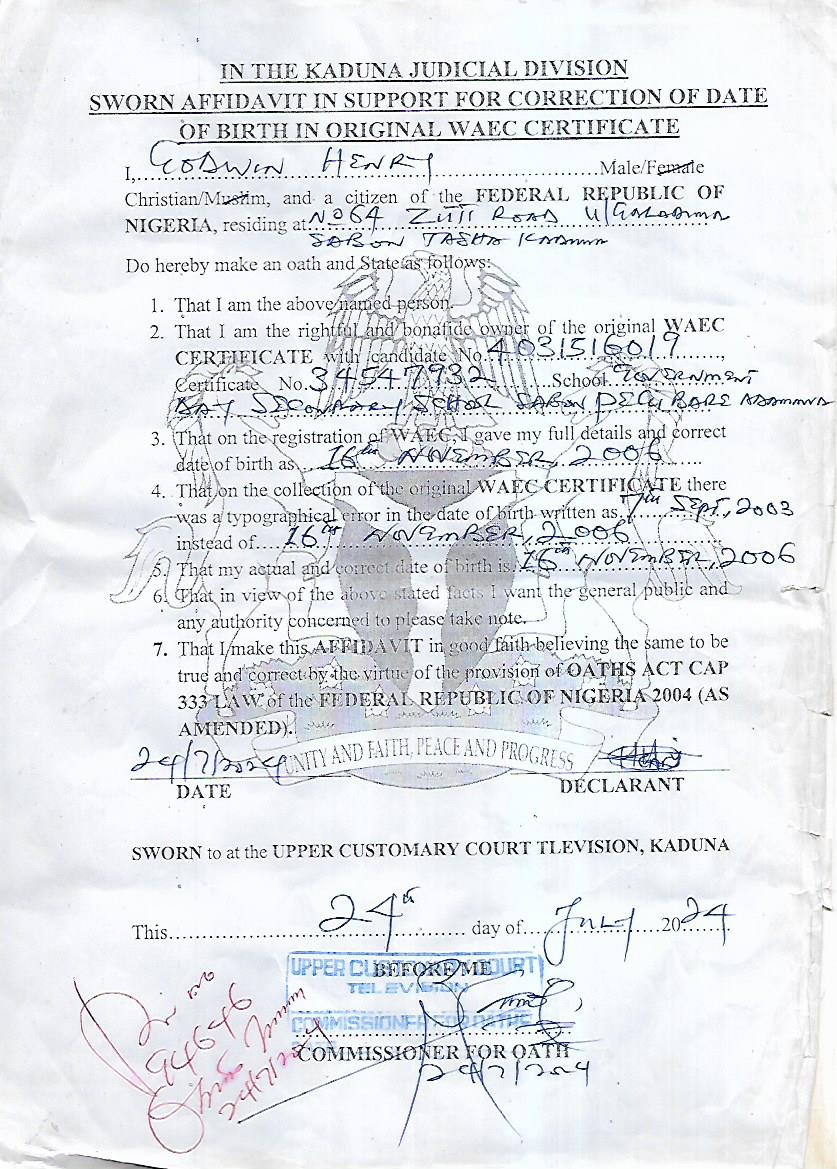 IN THE KADUNA JUDICIAL DIVISION
SWORN AFFIDAVIT IN SUPPORT FOR CORRECTION OF DATE
OF BIRTH IN ORIGINAL WAEC CERTIFICATE
I, GODWIN HENRY Male/Female
Christian/Muslim, and a citizen of the FEDERAL REPUBLIC OF
NIGERIA, residing at No 64 ROAD
SABON TASHA KADUNA
Do hereby make an oath and State as follows:
1. That I am the above named person.
2. That I am the rightful and bonafide owner of the original WAEC
CERTIFICATE with candidate No. 4031516019,
Certificate No. 34547932 School GOVERNMENT
DAY SECONDARY SCHOOL SABON
3. That on the registration of WAEC, I gave my full details and correct
date of birth as 16th NOVEMBER, 2006
4. That on the collection of the original WAEC CERTIFICATE there
was a typographical error in the date of birth written as 7th SEPT, 2003
instead of 16th NOVEMBER, 2006
5. That my actual and correct date of birth is 16th NOVEMBER, 2006
6. That in view of the above stated facts I want the general public and
any authority concerned to please take note.
7. That I make this AFFIDAVIT in good faith believing the same to be
true and correct by the virtue of the provision of OATHS ACT CAP
333 LAW of the FEDERAL REPUBLIC OF NIGERIA 2004 (AS
AMENDED).
UNITY AND FAITH, PEACE AND PROGRESS
24/7/2024
DATE DECLARANT
SWORN to at the UPPER CUSTOMARY COURT TLEVISION, KADUNA
This 24th day of JULY 2024
UPPER CUSTOMARY COURT
BEFORE ME
TELEVISION
COMMISSIONER FOR OATHS
COMMISSIONER FOR OATH
24/7/2024
94646
24/7/2024